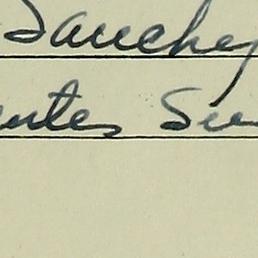 Sanchez
entes Su